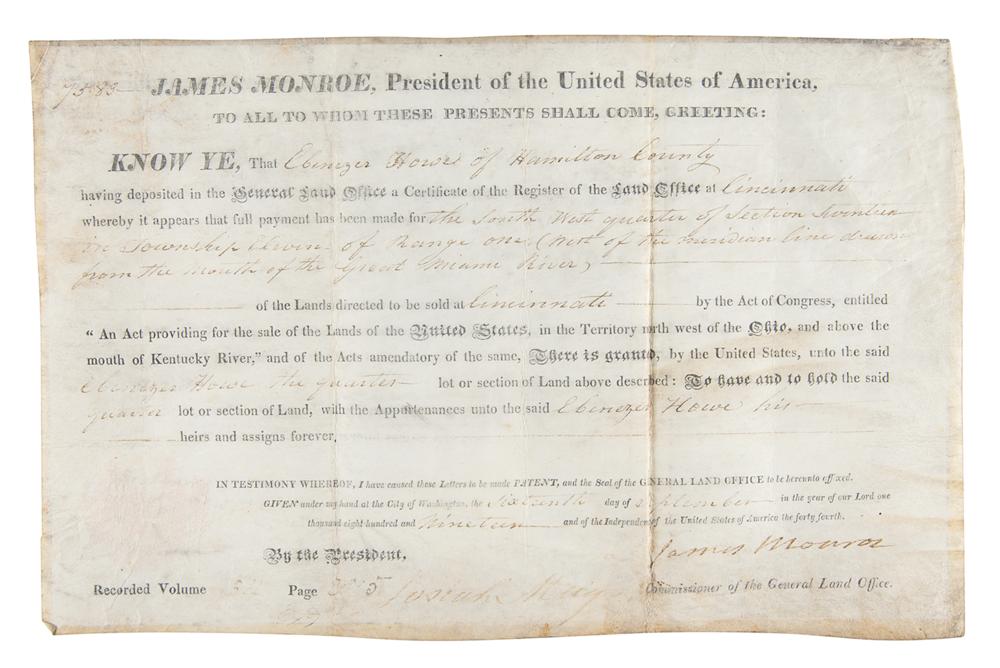 JAMES MONROE, President of the United States of America,
TO ALL TO WHOM THESE PRESENTS SHALL COME, GREETING:
KNOW YE, That Ebenezer Howe of Hamilton County
having deposited in the General Land Office a Certificate of the Register of the Land Office at Cincinnati
whereby it appears that full payment has been made for the South West quarter of Section
in Township of Range one (West of the meridian line drawn
from the Mouth of the Great Miami River,
of the Lands directed to be sold at Cincinnati by the Act of Congress, entitled
“ An Act providing for the sale of the Lands of the United States, in the Territory north west of the Ohio, and above the
mouth of Kentucky River,” and of the Acts amendatory of the same, There is granted, by the United States, unto the said
Ebenezer Howe the quarter lot or section of Land above described: To have and to hold the said
quarter lot or section of Land, with the Appurtenances unto the said Ebenezer Howe his
heirs and assigns forever.
IN TESTIMONY WHEREOF, I have caused these Letters to be made PATENT, and the Seal of the GENERAL LAND OFFICE to be hereunto affixed.
GIVEN under my hand at the City of Washington, the Sixteenth day of September in the year of our Lord one
thousand eight hundred and Nineteen and of the Independence of the United States of America the forty fourth.
By the President,
James Monroe
Recorded Volume Page Josiah Meigs Commissioner of the General Land Office.